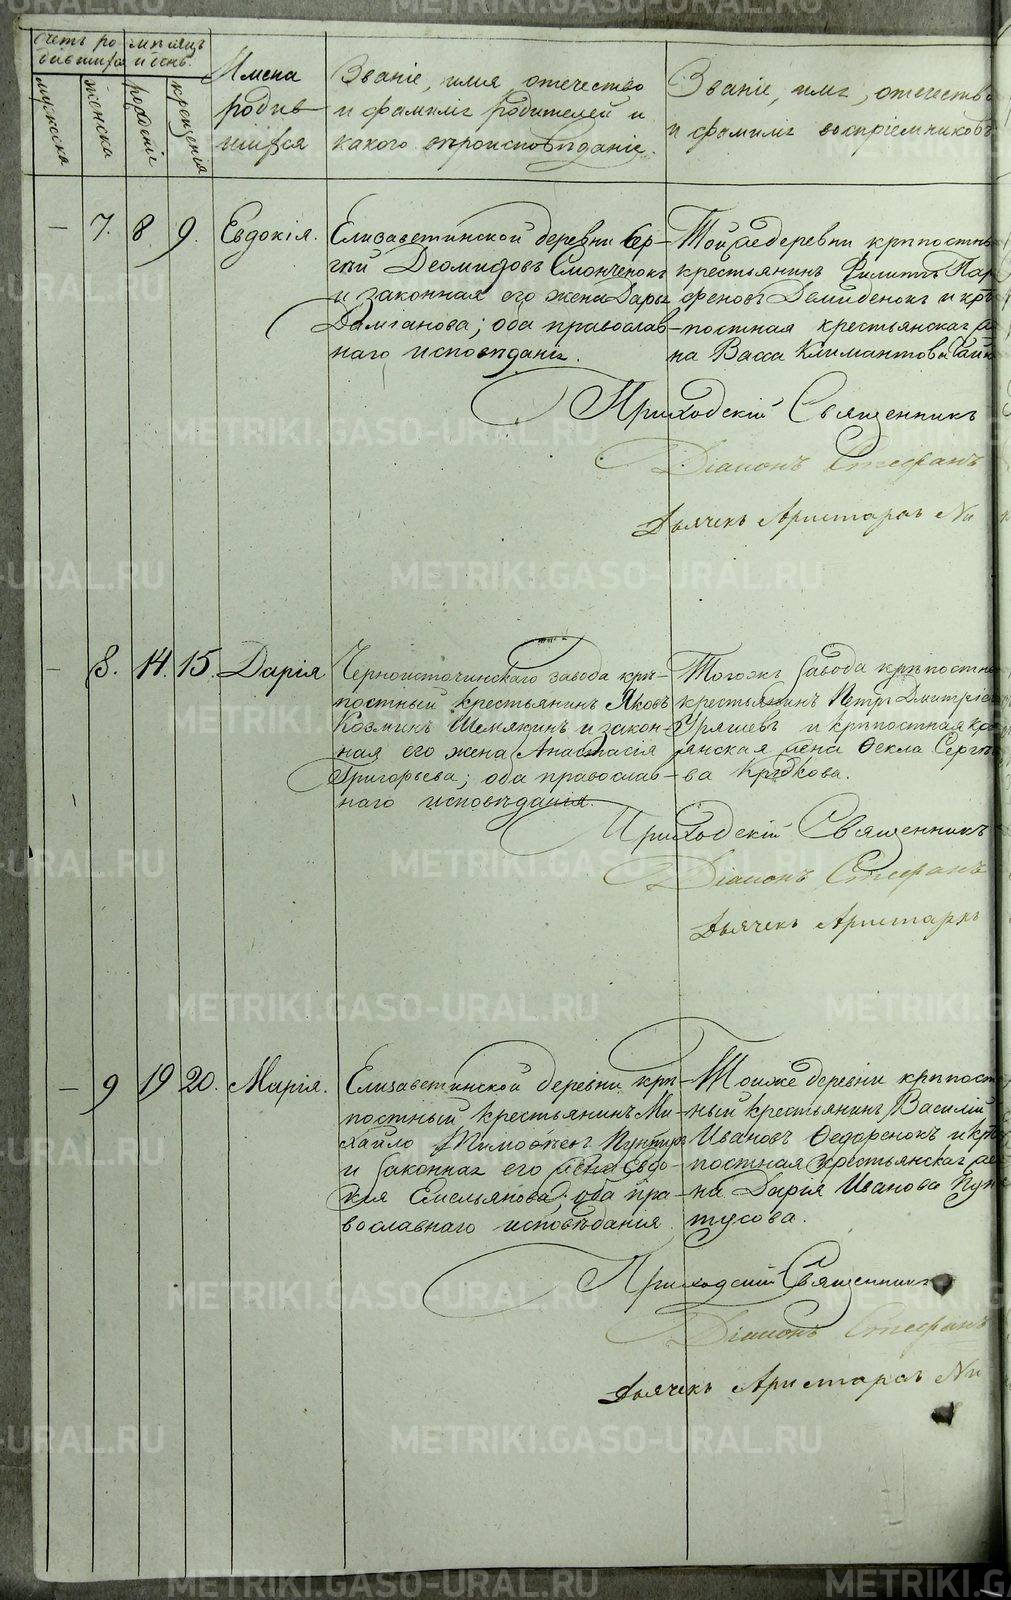 Счетъ ро
дившихся
мѣсяцъ
и день
мужеска
женска
рожденія
крещенія
Имена
родив
шихся
Званіе, имя, отечество
и фамилія родителей и
какого вѣроисповѣданія.
Званіе, имя, отечество
и фамилія воспріемниковъ
— 7. 8. 9. Евдокія.
Елисаветинской деревни Сер-
гѣй Деомидовъ
и законная его жена Дарья
Даміанова; оба православ-
наго исповѣданія.
Той же деревни крѣпостный
крестьянинъ Филиппъ Пар
феновъ Демиденокъ и крѣ-
постная крестьянская
на Васса Климантова
Приходскій Священникъ
Діаконъ Стефанъ
Дьячекъ Аристархъ Ни
— 8. 14. 15. Дарія
Черноисточинскаго завода крѣ-
постный крестьянинъ Яковъ
Козминъ Шемякинъ и закон-
ная его жена Анастасія
Григорьева; оба православ-
наго исповѣданія.
Тогожъ завода крѣпостный
крестьянинъ Петръ Дмитріевъ
и крѣпостная кре
янская жена Ѳекла Сергѣе
ва Крюкова.
Приходскій Священникъ
Діаконъ Стефанъ
Дьячекъ Аристархъ
— 9 19 20. Марія.
Елизаветинской деревни крѣ-
постный крестьянинъ Ми-
хайло Тимоѳеевъ
и законная его жена Евдо-
кія Емельянова; оба пра-
вославнаго исповѣданія
Тоиже деревни крѣпост-
ный крестьянинъ Василій
Ивановъ Ѳедоренокъ и крѣ-
постная крестьянская
на Дарія Иванова Пун
тусова.
Приходскій Священникъ
Діаконъ Стефанъ
Дьячекъ Аристархъ Ни
METRIKI.GASO-URAL.RU